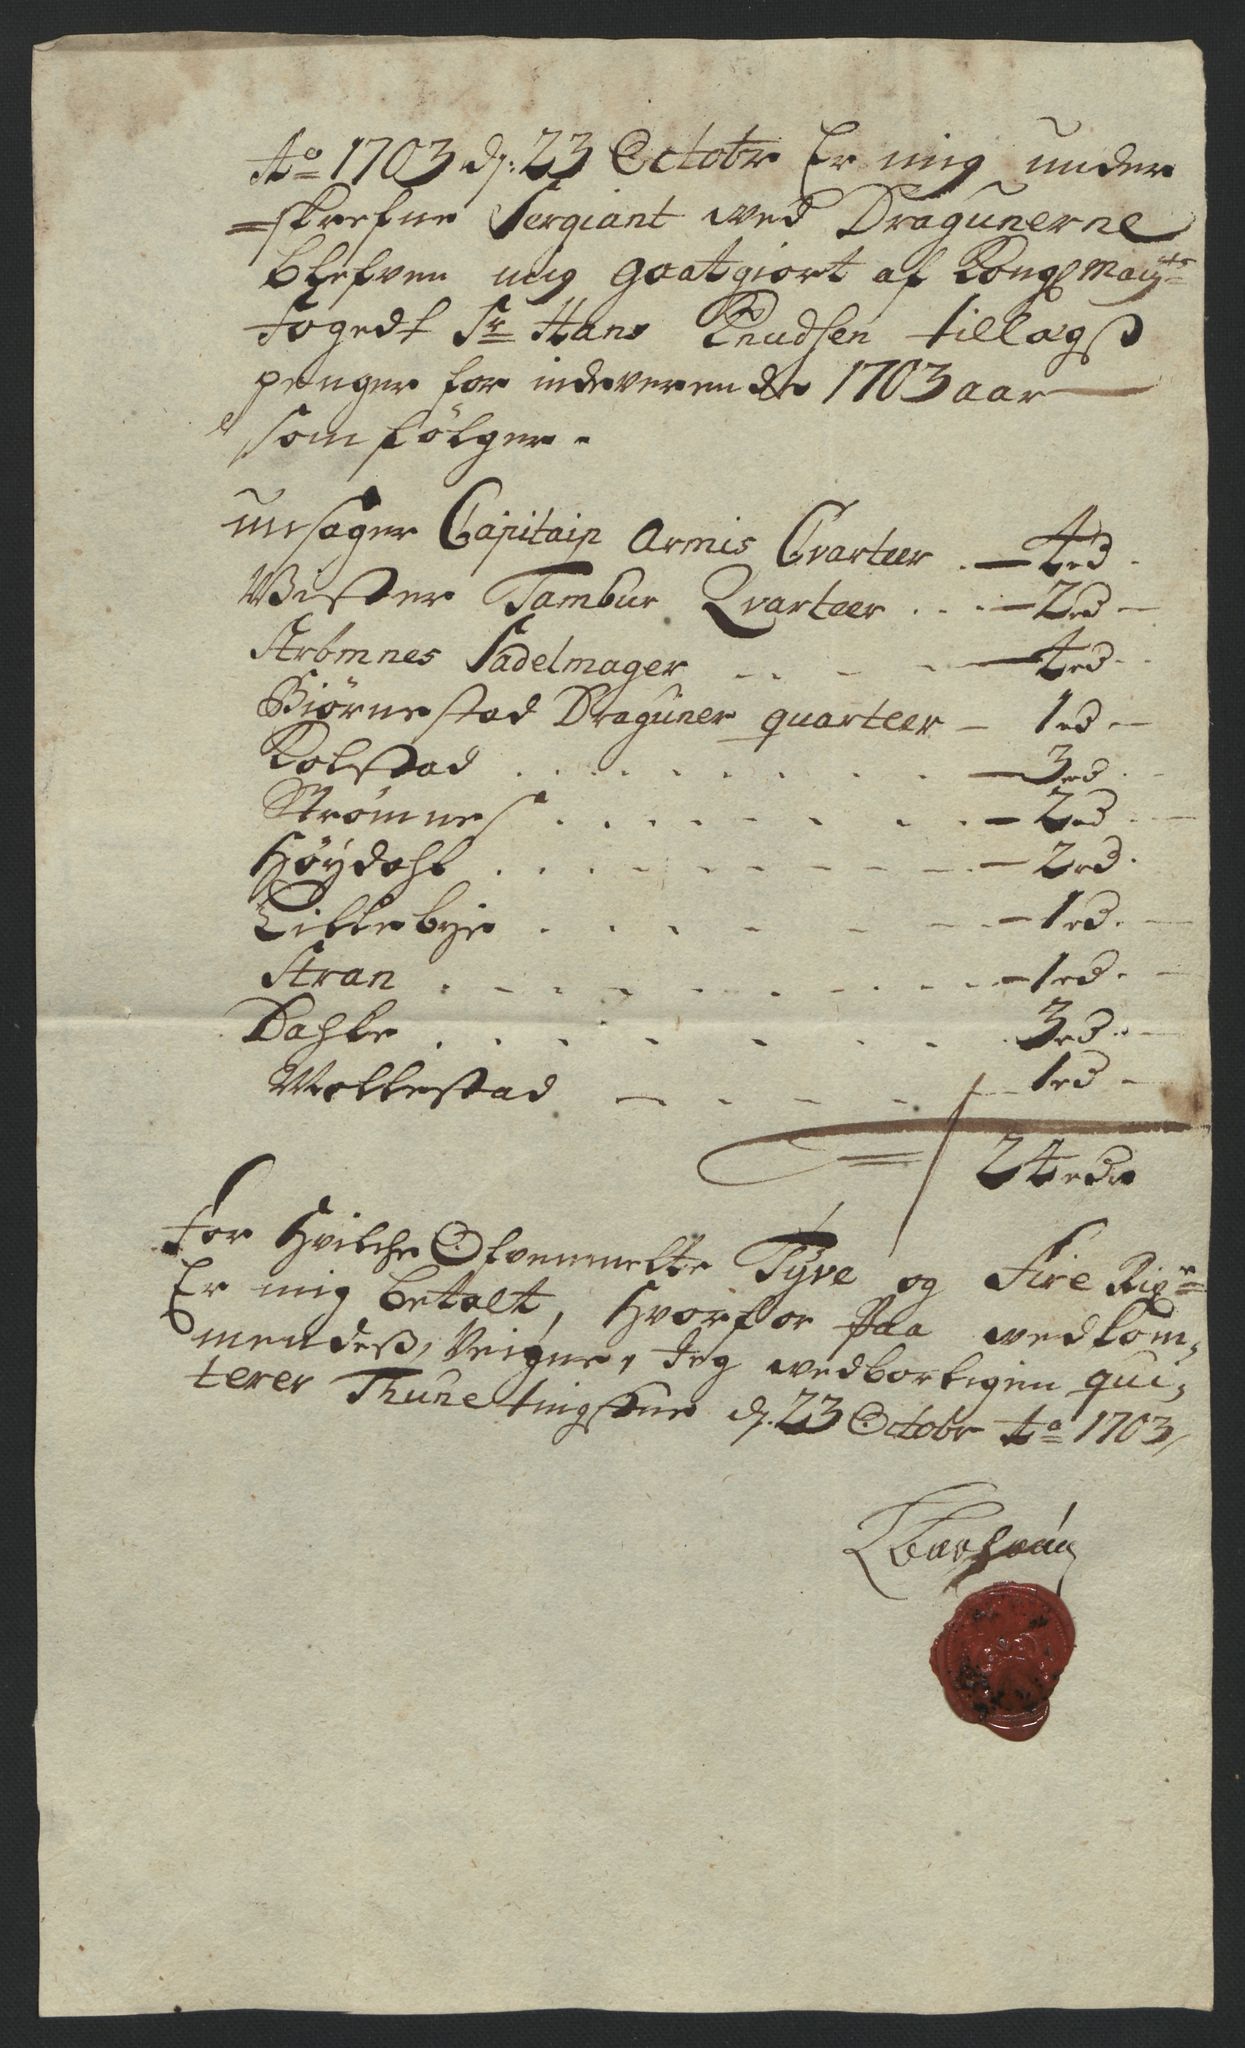 Ao 1703 d: 23 Octobr Er mig under
=skrefne Sergiant wed Dragunerne
blefven mig gaatgiort af Kongl Mayts
fogedt Sr Hans Knudsen tillægs
penger for indeverende 1703 aar
som følger.
unsager Capitain Armis Qvarteer . 4 rd .
Bister Tambur Qvarteer . . . 2 rd
Strömnes Sadelmager . . . . 4 rd .
Biörnestad Draguner quarteer - 1 rd .
Kolstad . . . . . . . 3 rd .
Strømnes . . . . . . 2 rd .
Høÿdahl . . . . . . . 2 rd .
Lillebye . . . . . . 1 rd .
Stran . . . . . . . . 1 rd .
Dahle . . . . . . . 3 rd .
Wollestad . . . . . 1 rd
24 rdr
for Hvilche Ofvenmelte Tÿve og Fire Rixr
Er mig betalt, Hvorfor paa wedkom,
mendess, Veigne, Jeg wedbørligen qui,
terer Thune tingstue d: 23 Octobr Ao 1703